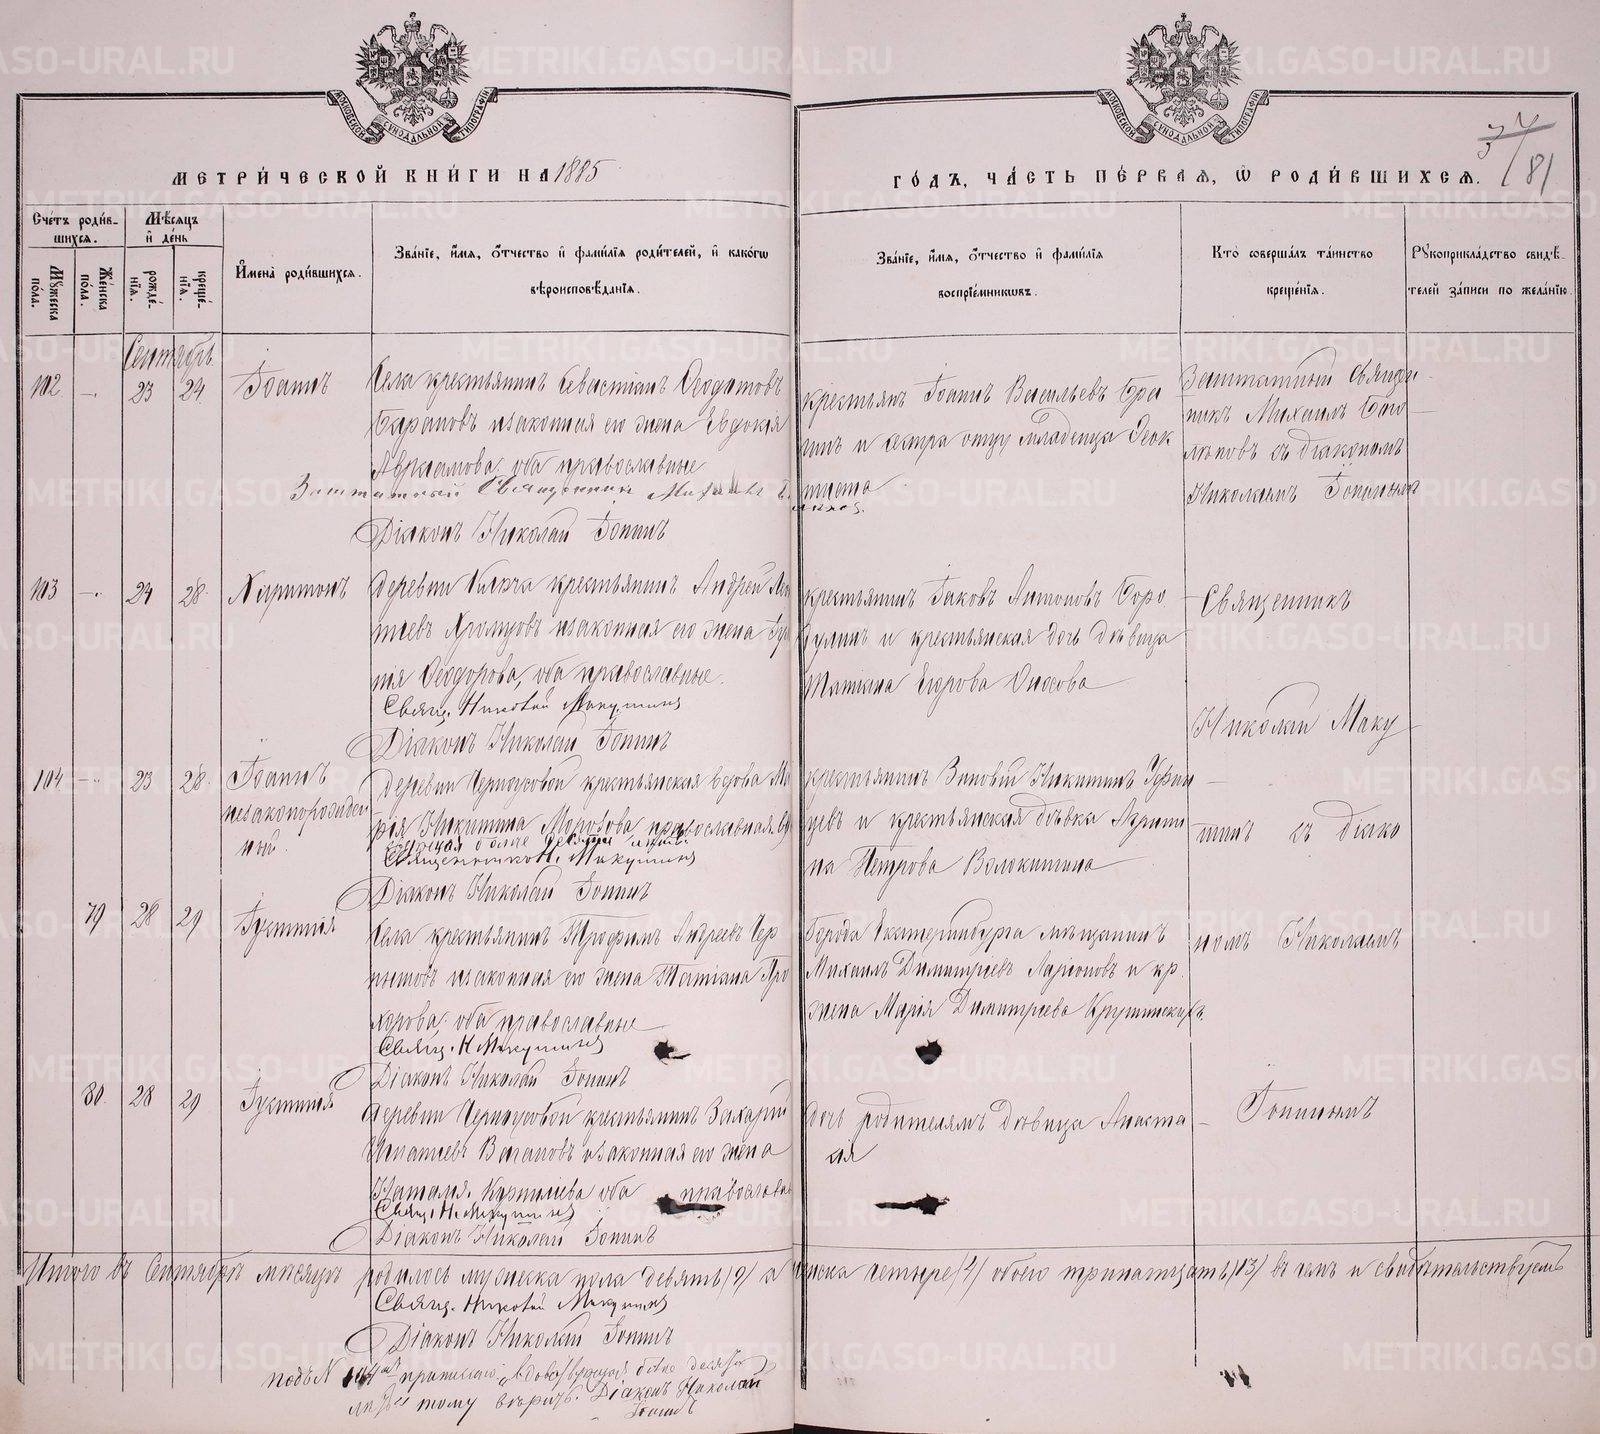 МОСКОВСКОЙ СѴНОДАЛЬНОЙ ТИПОГРАФІИ
МОСКОВСКОЙ СѴНОДАЛЬНОЙ ТИПОГРАФІИ
81
МЕТРИ́ЧЕСКОЙ КНИ́ГИ НА 1885
ГО́ДЪ, ЧА́СТЬ ПЕ́РВАЯ, Ѡ РОДИ́ВШИХСЯ.
Сче́тъ роди́в-
шихся.
Мѣ́сяцъ
и҆ де́нь
Мꙋ́жеска по́ла.
Же́нска по́ла.
рожде́-нїя.
креще́-нїя.
И҆мена̀ роди́вшихся.
Зва́нїе, и҆́мя, ѻ҆́тчество и҆ фами́лїя роди́телей, и҆ како́гѡ
вѣроисповѣ́данїя.
Зва́нїе, и҆́мя, ѻ҆́тчество и҆ фами́лїя
воспрїе́мникѡвъ.
Кто̀ соверша́лъ та́инство
креще́нїя.
Рꙋкоприкла́дство свидѣ́-
телей за́писи по жела́нїю.
Сентябрь
102 - 23 24 Іоаннъ
Села крестьянинъ Севастіанъ Ѳеодотовъ
Барановъ и законная его жена Евдокія
Авраамова, оба православные
Заштатный Священникъ Михаилъ
Діаконъ Николай Іонинъ
крестьян Іоаннъ Васильевъ Бра
гинъ и сестра отцу младенца Ѳеок
тиста
Заштатный Священ
никъ Михаилъ
съ діакономъ
Николаемъ Іонинымъ
103 - 24 28 Харитонъ
Деревни крестьянинъ Андрей
Хромцовъ и законная его жена
нія Ѳеодорова, оба православные.
Свящ. Николай Макушинъ
Діаконъ Николай Іонинъ
крестьянинъ Іаковъ Антоновъ Боро
дулинъ и крестьянская дочь дѣвица
Татіана Егорова Оносова
Священникъ
Николай Маку
104 - 23 28 Іоаннъ
незаконорожден
ный.
Деревни Черноусовой крестьянская вдова Ма
рія Никитина Морозова православная
болѣе десяти лѣтъ.
Священникъ Н. Макушинъ
Діаконъ Николай Іонинъ
крестьянинъ Зиновій Никитинъ
цевъ и крестьянская дѣвка
на Петрова Волокитина
шинъ съ діако
79 28 29 Іустинія
Села крестьянинъ Трофимъ Андреевъ Чер
и законная его жена Татіана Про
хорова, оба православные
Свящ. Н Макушинъ
Діаконъ Николай Іонинъ
Города Екатеринбурга мѣщанинъ
Михаилъ Димитріевъ Ларіоновъ и кр.
жена Марія Димитріева
номъ Николаемъ
80. 28 29 Іустинія
Деревни Черноусовой крестьянинъ Захарій
Игнатіевъ Вагановъ и законная его жена
Наталія Корниліева оба православн
Свящ. Н. Макушинъ
Діаконъ Николай Іонинъ
дочь родителямъ дѣвица Анаста
сія
Іонинымъ
Итого въ Сентябрѣ мѣсяцѣ родилось мужеска пола девять /9/ а женска четыре /4/ обоего тринатцать /13/ въ чемъ и свидѣтельствуемъ
Свящ. Николай Макушинъ
Діаконъ Николай Іонинъ
подъ N 104 приписано, вдовствующая болѣе десяти
лѣтъ тому вѣрить. Діаконъ Николай
Іонинъ